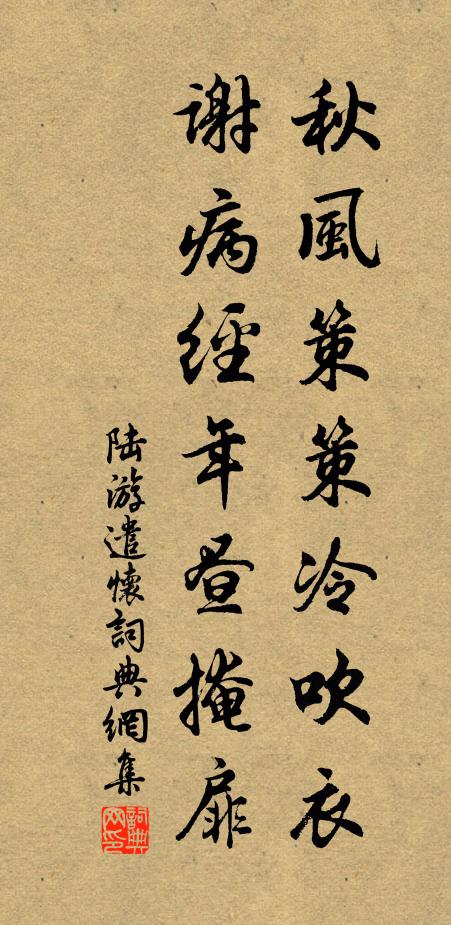 秋風策策冷吹衣
謝病經年昼掩扉
陆游遣懷詞典網集
詞典網印